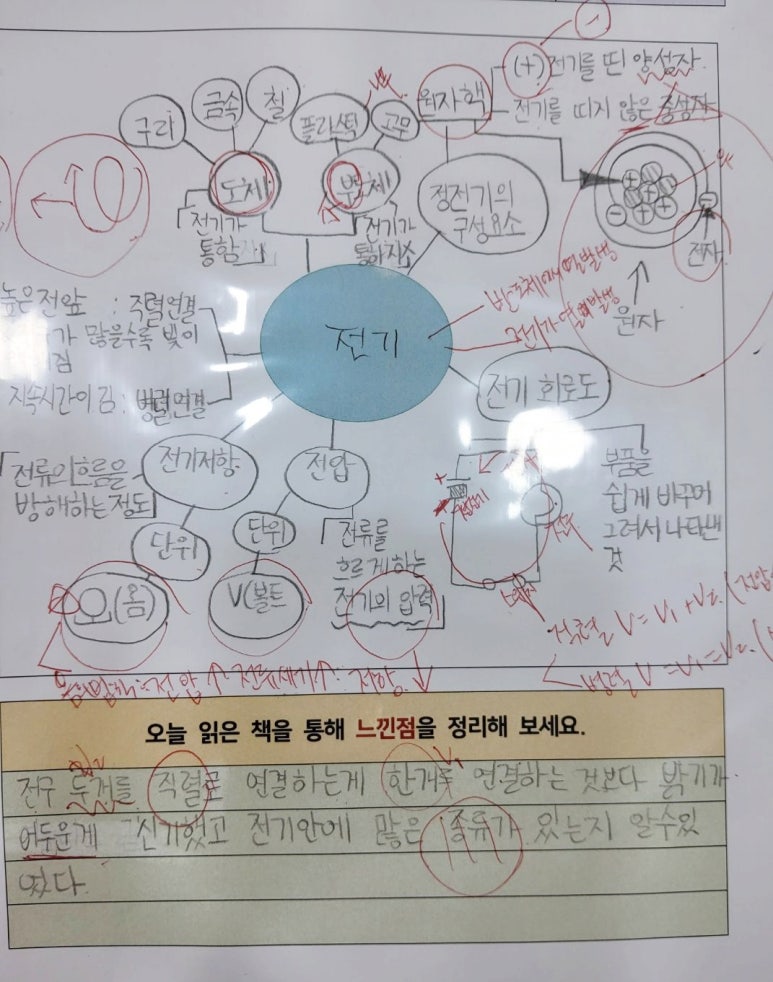 (+)전기를 띤 양성자.
전기를 띠지 않은 중성자
원자핵
구리
금속
철
플라스틱
고무
도체
부도체
전기가
통함
전기가
통하지
정전기의
구성요소
전자
원자
전기
높은 전압 : 직렬연결
가 많을수록 빛이
지속시간이 김 : 병렬연결
전기 회로도
부품을
쉽게 바꾸어
그려서 나타낸
것
전기저항
전류의 흐름을
방해하는 정도
단위
전압
단위
V(볼트
전류를
흐르게하는
전기의 압력
직렬 V = V1 + V2. (전압
병렬 V = V1 = V2. (
오늘 읽은 책을 통해 느낀점을 정리해 보세요.
전구 두개를 직렬로 연결하는게 한개를 연결하는 것보다 밝기가
어두운게 신기했고 전기안에 많은 종류가 있는지 알수있
었다.